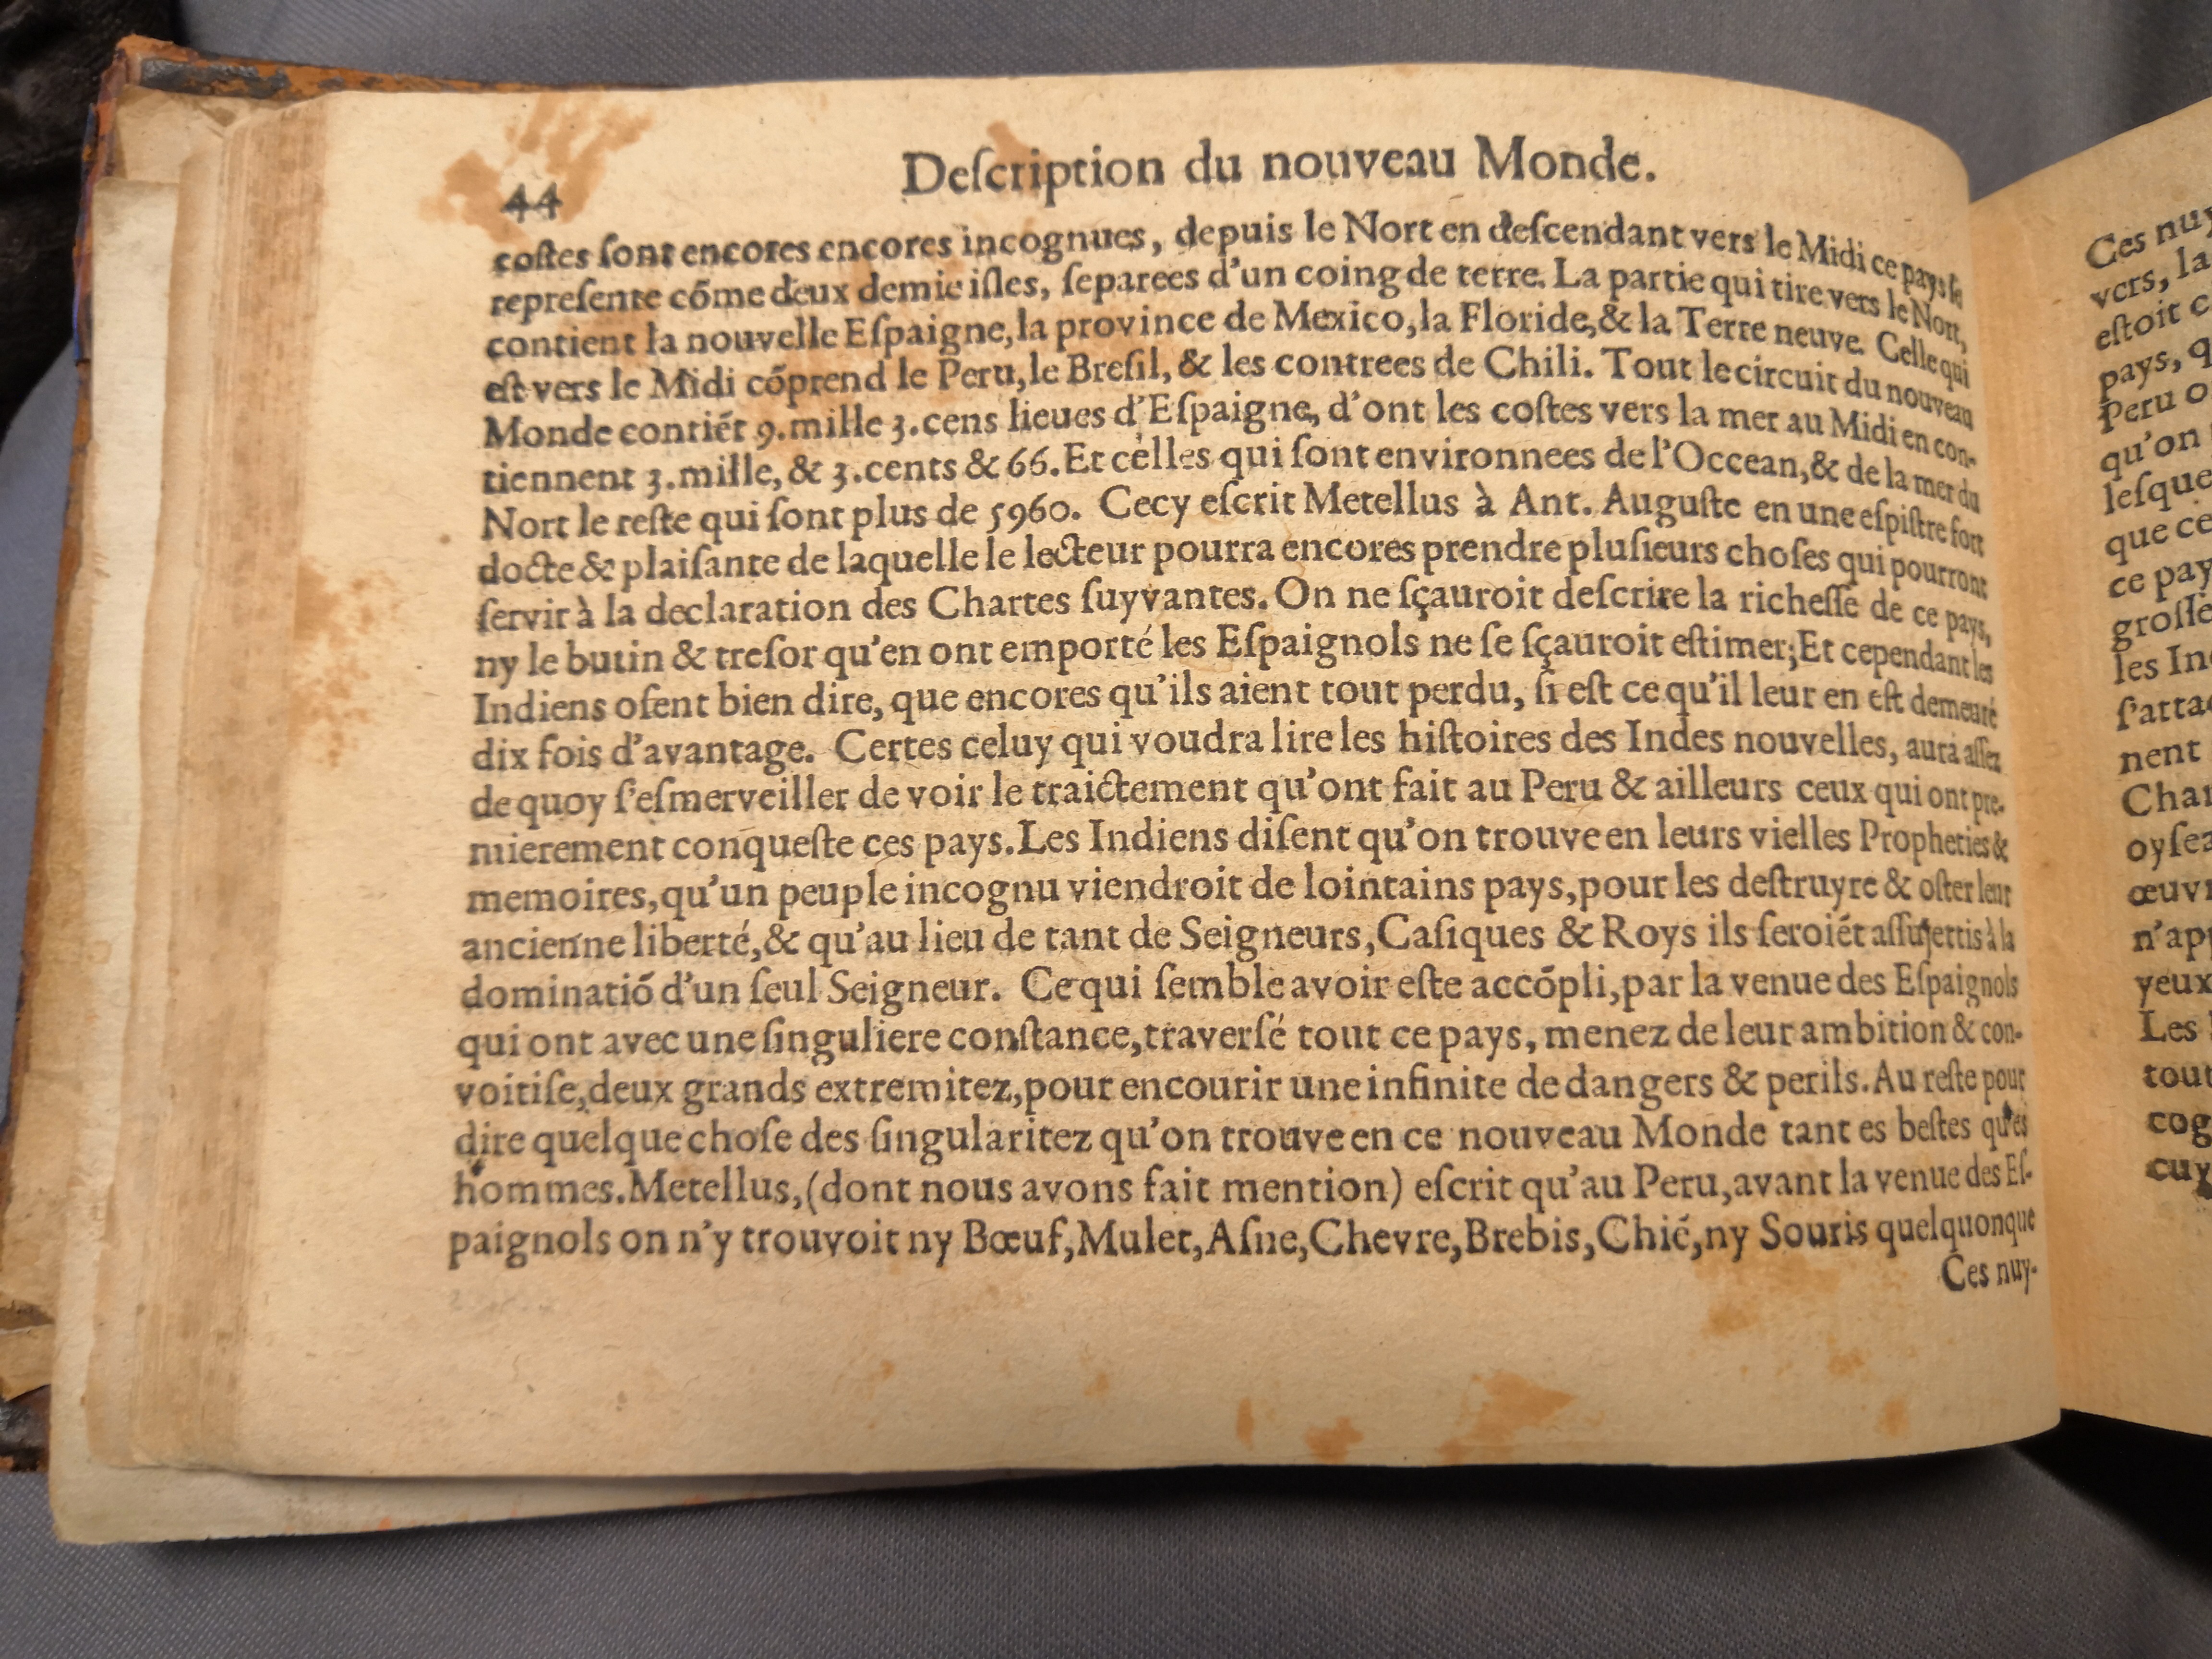 44
Deſcription du nouveau Monde.
coſtes ſont encores encores incognues, depuis le Nort en deſcendant vers le Midi ce pays ſe
repreſente cõme deux demie iſles, ſeparees d'un coing de terre. La partie qui tire vers le Nort,
contient la nouvelle Eſpaigne, la province de Mexico, la Floride, & la Terre neuve. Celle qui
eſt vers le Midi cõprend le Peru, le Breſil, & les contrees de Chili. Tout le circuit du nouveau
Monde contiẽt 9. mille 3. cens lieues d'Eſpaigne, d'ont les coſtes vers la mer au Midi en con-
tiennent 3. mille, & 3. cents & 66. Et celles qui ſont environnees de l'Occean, & de la mer du
Nort le reſte qui ſont plus de 5960. Cecy eſcrit Metellus à Ant. Auguſte en une eſpiſtre fort
docte & plaiſante de laquelle le lecteur pourra encores prendre pluſieurs choſes qui pourront
ſervir à la declaration des Chartes ſuyvantes. On ne ſçauroit deſcrire la richeſſe de ce pays,
ny le butin & treſor qu'en ont emporté les Eſpaignols ne ſe ſçauroit eſtimer; Et cependant les
Indiens oſent bien dire, que encores qu'ils aient tout perdu, ſi eſt ce qu'il leur en eſt demeuré
dix fois d'avantage. Certes celuy qui voudra lire les hiſtoires des Indes nouvelles, aura aſſez
de quoy ſ'eſmerveiller de voir le traictement qu'ont fait au Peru & ailleurs ceux qui ont pre-
mierement conqueſte ces pays. Les Indiens diſent qu'on trouve en leurs vielles Propheties &
memoires, qu'un peuple incognu viendroit de lointains pays, pour les deſtruyre & oſter leur
ancienne liberté, & qu'au lieu de tant de Seigneurs, Caſiques & Roys ils ſeroiẽt aſſujettis à la
dominatiõ d'un ſeul Seigneur. Ce qui ſemble avoir eſte accõpli, par la venue des Eſpaignols
qui ont avec une ſinguliere conſtance, traverſé tout ce pays, menez de leur ambition & con-
voitiſe, deux grands extremitez, pour encourir une infinite de dangers & perils. Au reſte pour
dire quelque choſe des ſingularitez qu'on trouve en ce nouveau Monde tant es beſtes qu'es
hommes. Metellus, (dont nous avons fait mention) eſcrit qu'au Peru, avant la venue des Eſ-
paignols on n'y trouvoit ny Bœuf, Mulet, Aſne, Chevre, Brebis, Chiẽ, ny Souris quelquonque
Ces nuy-
Ces nuy
vers, la
eſtoit c
pays, q
Peru o
qu'on
leſque
que ce
ce pay
groſſe
les In
ſ'atta
nent
Char
oyſea
œuvr
n'app
yeux
Les
tout
cog
cuy